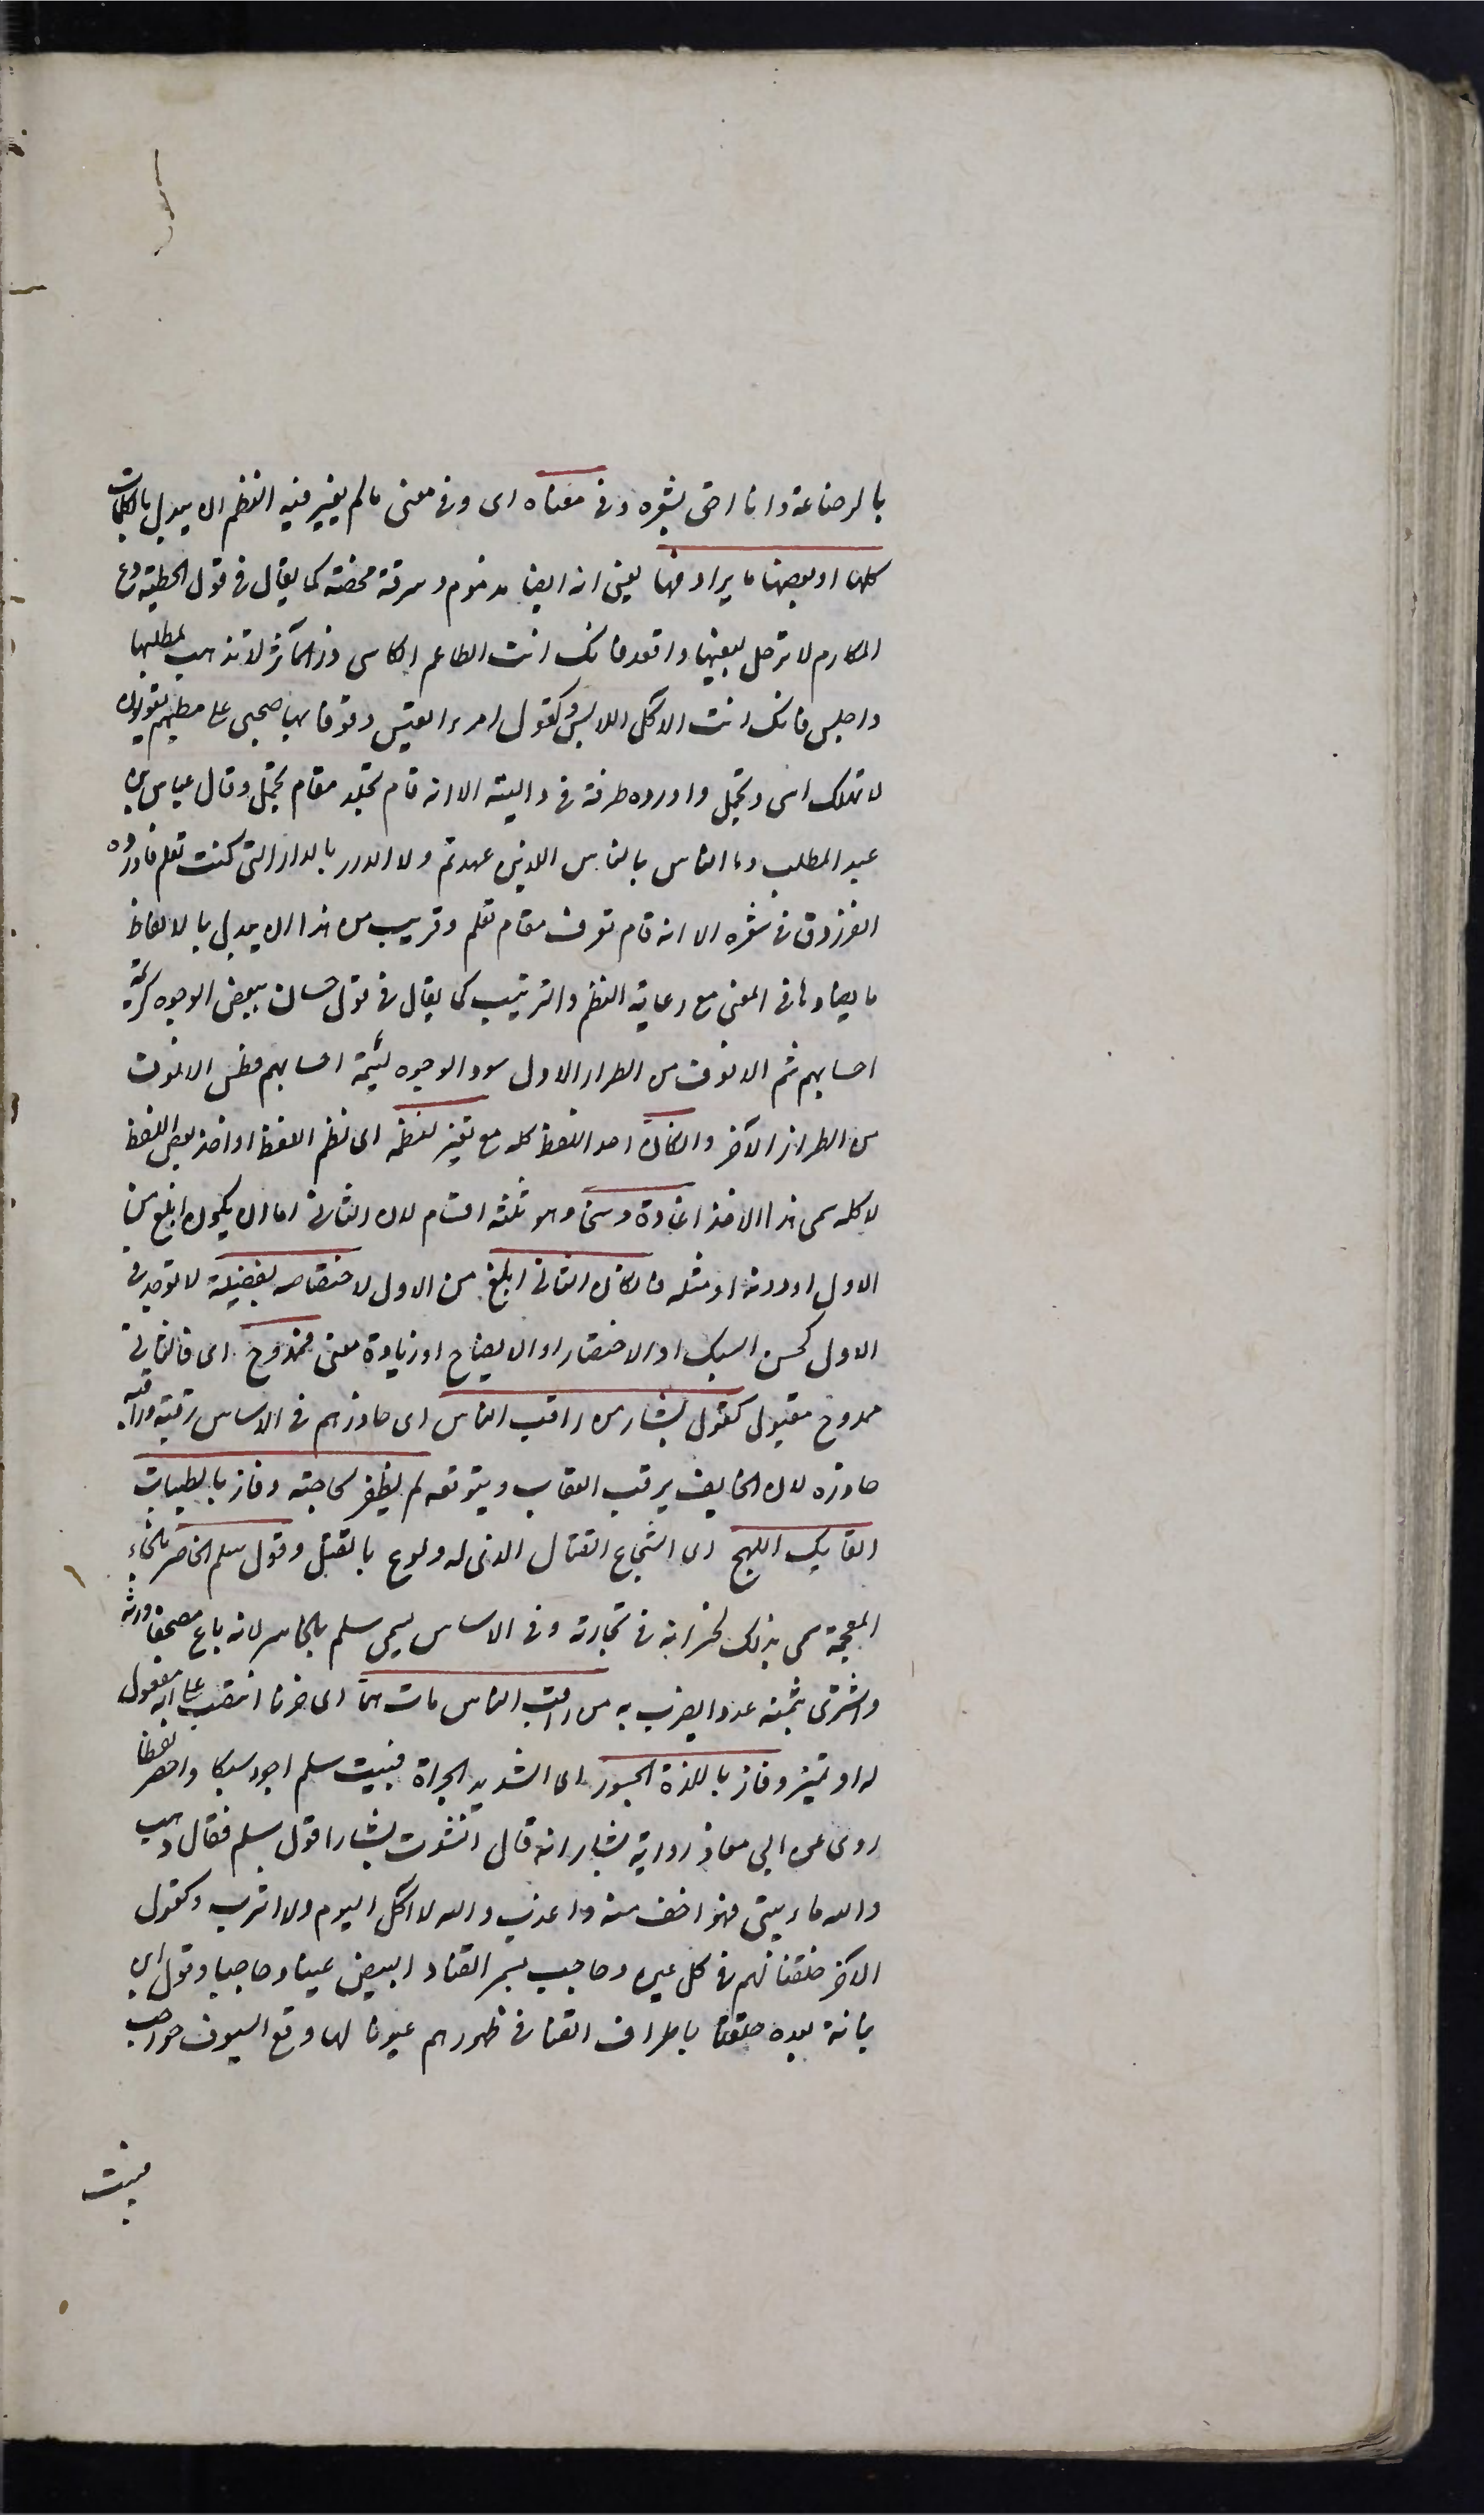 بالرضاعة وانا احق بشعره وفى معناه اى وفى معنى ما لم يغير فيه النظم ان يبدل بالكلمات
كلها او بعضها ما يرادفها يعنى انه ايضا مذموم وسرقة محضة كما يقال فى قول الحطيئة دع
المكارم لا ترحل لبغيتها واقعد فانك انت الطاعم الكاسى ذر المآثر لا تذهب لمطلبها
واجلس فانك انت الآكل اللابس وكقول امرء القيس وقوفا بها صحبى على مطيهم يقولون
لا تهلك اسى وتجمل واورده طرفة فى داليته الا انه قام تجلد مقام تجمل وقال عباس بن
عبد المطلب وما الناس بالناس الذين عهدتم ولا الدار بالدار التى كنت تعلم فاورده
الفرزدق فى شعره الا انه قام تعرف مقام تعلم وقريب من هذا ان يبدل بالالفاظ
ما يضادها فى المعنى مع رعاية النظم والترتيب كما يقال فى قول حسان بيض الوجوه كريمة
احسابهم شم الانوف من الطراز الاول سود الوجوه لئيمة احسابهم فطس الانوف
من الطراز الآخر وان كان اخذ اللفظ كله مع تغيير لنظمه اى نظم اللفظ او اخذ بعض اللفظ
لا كله سمى هذا الاخذ اغارة ومسخا وهو ثلثة اقسام لان الثانى اما ان يكون ابلغ من
الاول او دونه او مثله فان كان الثانى ابلغ من الاول لاختصاصه بفضيلة لا توجد فى
الاول كحسن السبك او الاختصار او الايضاح او زيادة معنى فممدوح اى فالثانى
ممدوح مقبول كقول بشار من راقب الناس اى حاذرهم فى الاساس رقبه وراقبه
حاذره لان الخايف يرقب العقاب ويتوقعه لم يظفر بحاجته وفاز بالطيبات
الفاتك اللهج اى الشجاع القتال الذى له ولوع بالقتل وقول سلم الخاسر بالخاء
المعجمة سمى بذلك لخسرانه فى تجارته وفى الاساس سمى سلم بالخاسر لانه باع مصحفا ورثه
واشترى بثمنه عودا يضرب به من راقب الناس مات هما اى حزنا انتصب على انه مفعول
له او تمييز وفاز باللذة الجسور اى الشديد الجرأة فبيت سلم اجود سبكا واخصر لفظا
روى عن ابى معاذ رواية بشار انه قال انشدت بشارا قول سلم فقال ذهب
والله ما بيتى فهو اخف منه واعذب والله لا اكل اليوم ولا اشرب وكقول
الآخر خلقنا لهم فى كل عين وحاجب بسمر القنا والبيض عينا وحاجبا وقول ابن
نباتة بعده خلقنا باطراف القنا فى ظهورهم عيونا لها وقع السيوف حواجب
فبيت